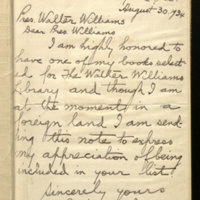 August 30, '34
Pres. Walter Williams
Dear Pres. Williams
I am highly honored to
have one of my books select-
ed for The Walter Williams
Library and though I am
at the moment in a
foreign land I am send-
ing this note to express
my appreciation of being
included in your list.
Sincerely yours